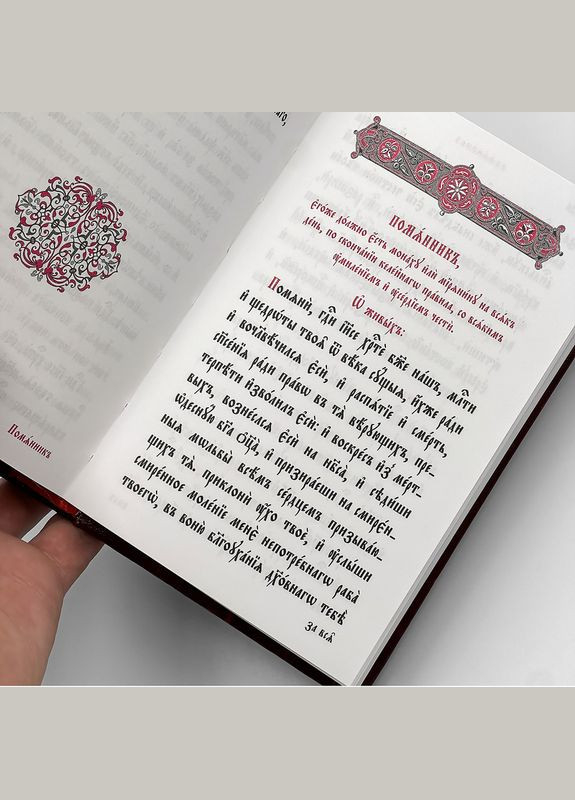 аго,
Помѧ́нникъ
ПОМѦ́ННИКЪ,
Егѡ́же до́лжно є҆́сть мона́хꙋ и҆лѝ мїрѧни́нꙋ на всѧ́къ
де́нь, по скончанїи келе́йнагѡ пра́вила, со всѧ́кимъ
ᲂу҆миле́нїемъ и҆ ᲂу҆се́рдїемъ честѝ.
Ѡ҆ живы́хъ:
Помѧнѝ, гдⷭ҇и і҆и҃се хрⷭ҇тѐ бж҃е на́шъ, млⷭ҇ти
и҆ щедрѡ́ты твоѧ̑ ѿ вѣ́ка сꙋ́щыѧ, и҆́хже ра́ди
и҆ вочл҃вѣ́чилсѧ є҆сѝ, и҆ распѧ́тїе и҆ сме́рть,
спⷭ҇нїѧ ра́ди пра́вѡ въ тѧ̀ вѣ́рꙋющихъ, пре-
терпѣ́ти и҆зво́лилъ є҆сѝ: и҆ воскре́съ и҆з̾ ме́рт-
выхъ, возне́слсѧ є҆сѝ на нб҃са̀, и҆ сѣди́ши
ѡ҆деснꙋ́ю бг҃а ѻ҆ц҃а̀, и҆ призира́еши на смире́н-
ныѧ мольбы̑ всѣ́мъ се́рдцемъ призыва́ю-
щихъ тѧ̀. приклонѝ ᲂу҆́хо твоѐ, и҆ ᲂу҆слы́ши
смире́нное моле́нїе менѐ непотре́бнагѡ раба̀
твоегѡ̀, въ воню̀ благоꙋха́нїѧ дꙋхо́внагѡ тебѣ̀
за всѧ̑